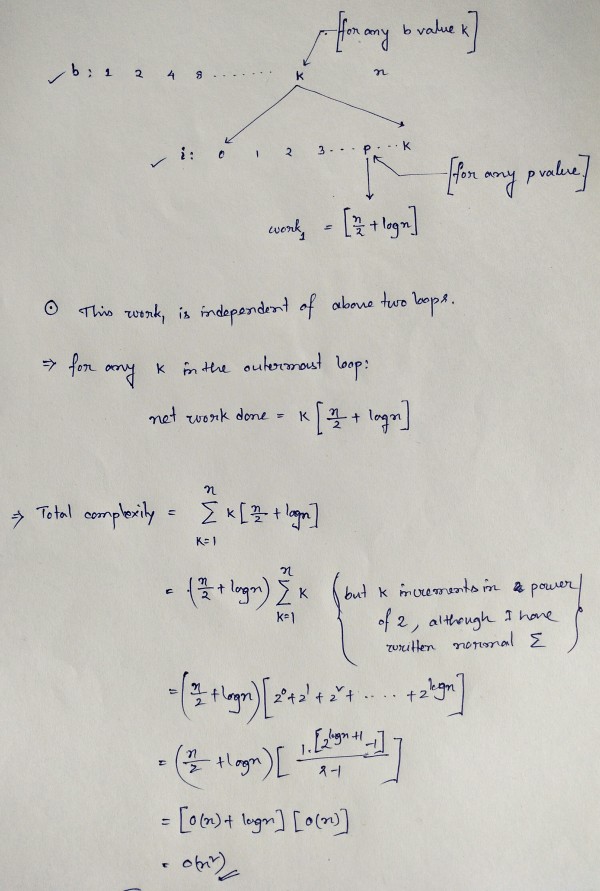 [for any b value k]
✓ b : 1 2 4 8 ........ k n
✓ i : 0 1 2 3 ... p ... k
[for any p value]
work₁ = [n/2 + logn]
⊙ This work₁ is independent of above two loops.
⇒ for any k in the outermost loop:
net work done = k [n/2 + logn]
⇒ Total complexity = Σ_{k=1}^{n} k [n/2 + logn]
= (n/2 + logn) Σ_{k=1}^{n} k {but k increments in power
of 2, although I have
written normal Σ}
= (n/2 + logn) [2⁰ + 2¹ + 2² + ..... + 2^{logn}]
= (n/2 + logn) [1·[2^{logn+1} - 1] / 2-1]
= [O(n) + logn] [O(n)]
= O(n²)